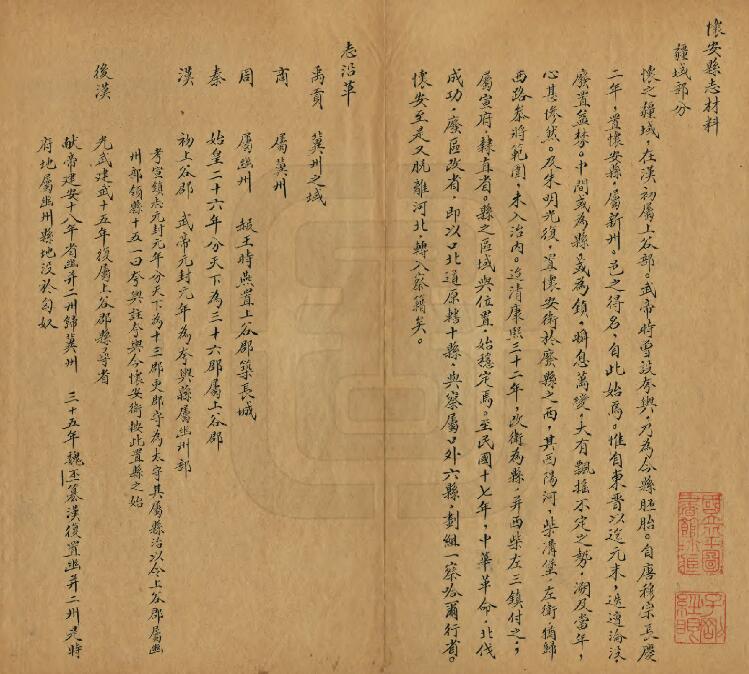 懷安縣志材料
疆域部分
懷之疆域，在漢初屬上谷部。武帝時曾設夸輿，乃為今縣胚胎。自唐穆宗長慶
二年，置懷安縣，屬新州。邑之得名，自此始焉。惟自東晉以迄元末，迭遭淪沒，
廢置益棼。中間或為縣，或為鎮，瞬息萬變，大有飄搖不定之勢，溯及當年，
心甚慘然。及朱明光復，置懷安衛於廢縣之西，其西陽河，柴溝堡，左衛猶歸
西路參將範圍，未入治內。迄清康熙三十二年，改衛為縣，并西柴左三鎮付之，
屬宣府，隸直省。縣之區域與位置，始穩定焉。至民國十七年，中華革命，北伐
成功，廢區改省，即以口北道原轄十縣，與察屬口外六縣，劃組一察哈爾行省。
懷安至是又脫離河北，轉入察籍矣。
志沿革
禹貢　冀州之域
商　屬冀州
周　屬幽州　赧王時燕置上谷郡築長城
秦　始皇二十六年分天下為三十六郡屬上谷郡
漢　初上谷郡　武帝元封元年為夸輿縣屬幽州部
考宣鎮志元封元年分天下為十三郡更郡守為太守其屬縣治以今上谷郡屬幽
州部領縣十五一曰夸輿註夸輿今懷安衛按此置縣之始
後漢　光武建武十五年復屬上谷郡縣尋省
獻帝建安十八年省幽并二州歸冀州　二十五年魏丕篡漢復置幽并二州是時
府地屬幽州縣地沒於匈奴